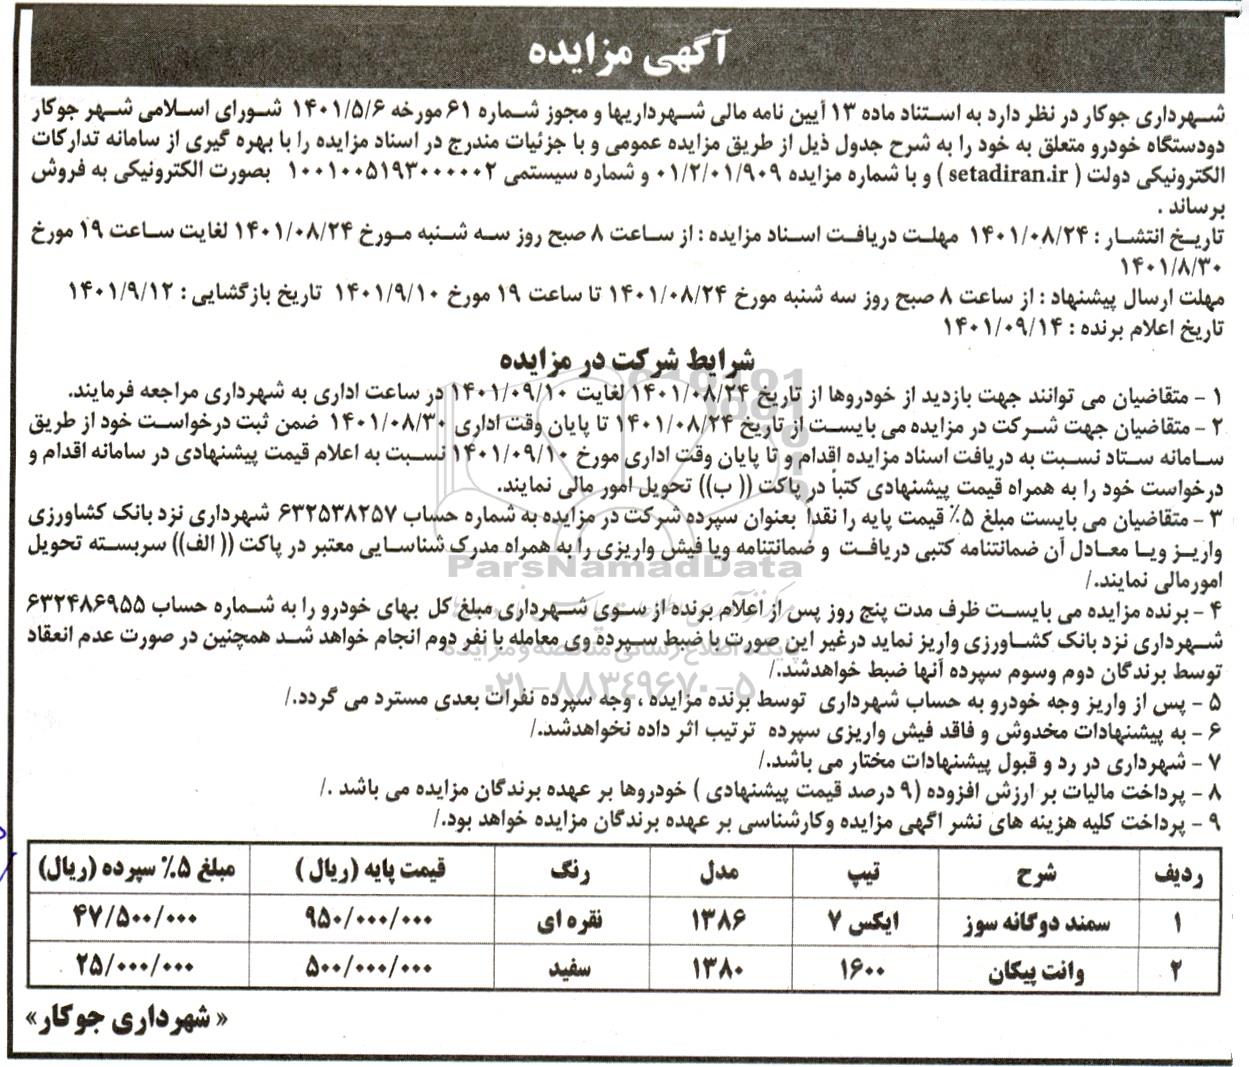 آگهی مزایده
شهرداری جوکار در نظر دارد به استناد ماده ۱۳ آیین نامه مالی شهرداریها و مجوز شماره ۶۱ مورخه ۱۴۰۱/۵/۶ شورای اسلامی شهر جوکار
دودستگاه خودرو متعلق به خود را به شرح جدول ذیل از طریق مزایده عمومی و با جزئیات مندرج در اسناد مزایده را با بهره گیری از سامانه تدارکات
الکترونیکی دولت ( setadiran.ir ) و با شماره مزایده ۰۱/۲/۰۱/۹۰۹ و شماره سیستمی ۱۰۰۱۰۰۵۱۹۳۰۰۰۰۰۲ بصورت الکترونیکی به فروش
برساند .
تاریخ انتشار : ۱۴۰۱/۰۸/۲۴ مهلت دریافت اسناد مزایده : از ساعت ۸ صبح روز سه شنبه مورخ ۱۴۰۱/۰۸/۲۴ لغایت ساعت ۱۹ مورخ
۱۴۰۱/۸/۳۰
مهلت ارسال پیشنهاد : از ساعت ۸ صبح روز سه شنبه مورخ ۱۴۰۱/۰۸/۲۴ تا ساعت ۱۹ مورخ ۱۴۰۱/۹/۱۰ تاریخ بازگشایی : ۱۴۰۱/۹/۱۲
تاریخ اعلام برنده : ۱۴۰۱/۰۹/۱۴
شرایط شرکت در مزایده
۱ - متقاضیان می توانند جهت بازدید از خودروها از تاریخ ۱۴۰۱/۰۸/۲۴ لغایت ۱۴۰۱/۰۹/۱۰ در ساعت اداری به شهرداری مراجعه فرمایند.
۲ - متقاضیان جهت شرکت در مزایده می بایست از تاریخ ۱۴۰۱/۰۸/۲۴ تا پایان وقت اداری ۱۴۰۱/۰۸/۳۰ ضمن ثبت درخواست خود از طریق
سامانه ستاد نسبت به دریافت اسناد مزایده اقدام و تا پایان وقت اداری مورخ ۱۴۰۱/۰۹/۱۰ نسبت به اعلام قیمت پیشنهادی در سامانه اقدام و
درخواست خود را به همراه قیمت پیشنهادی کتباً در پاکت (( ب)) تحویل امور مالی نمایند.
۳ - متقاضیان می بایست مبلغ ۵٪ قیمت پایه را نقداً بعنوان سپرده شرکت در مزایده به شماره حساب ۶۳۲۵۳۸۲۵۷ شهرداری نزد بانک کشاورزی
واریز ویا معادل آن ضمانتنامه کتبی دریافت و ضمانتنامه ویا فیش واریزی را به همراه مدرک شناسایی معتبر در پاکت (( الف)) سربسته تحویل
امورمالی نمایند./
ParsNamadData
۴ - برنده مزایده می بایست ظرف مدت پنج روز پس از اعلام برنده از سوی شهرداری مبلغ کل بهای خودرو را به شماره حساب ۶۳۲۴۸۶۹۵۵
شهرداری نزد بانک کشاورزی واریز نماید درغیر این صورت با ضبط سپرده وی معامله با نفر دوم انجام خواهد شد همچنین در صورت عدم انعقاد
پایگاه اطلاع رسانی مناقصه و مزایده
توسط برندگان دوم وسوم سپرده آنها ضبط خواهدشد./
۰۲۱-۸۸۳۴۹۶۷۰-۵
۵ - پس از واریز وجه خودرو به حساب شهرداری توسط برنده مزایده ، وجه سپرده نفرات بعدی مسترد می گردد./
۶ - به پیشنهادات مخدوش و فاقد فیش واریزی سپرده ترتیب اثر داده نخواهدشد./
۷ - شهرداری در رد و قبول پیشنهادات مختار می باشد./
۸ - پرداخت مالیات بر ارزش افزوده (۹ درصد قیمت پیشنهادی ) خودروها بر عهده برندگان مزایده می باشد ./
۹ - پرداخت کلیه هزینه های نشر اگهی مزایده وکارشناسی بر عهده برندگان مزایده خواهد بود./
ردیف شرح تیپ مدل رنگ قیمت پایه (ریال ) مبلغ ۵٪ سپرده (ریال)
۱ سمند دوگانه سوز ایکس ۷ ۱۳۸۶ نقره ای ۹۵۰/۰۰۰/۰۰۰ ۴۷/۵۰۰/۰۰۰
۲ وانت پیکان ۱۶۰۰ ۱۳۸۰ سفید ۵۰۰/۰۰۰/۰۰۰ ۲۵/۰۰۰/۰۰۰
« شهرداری جوکار»